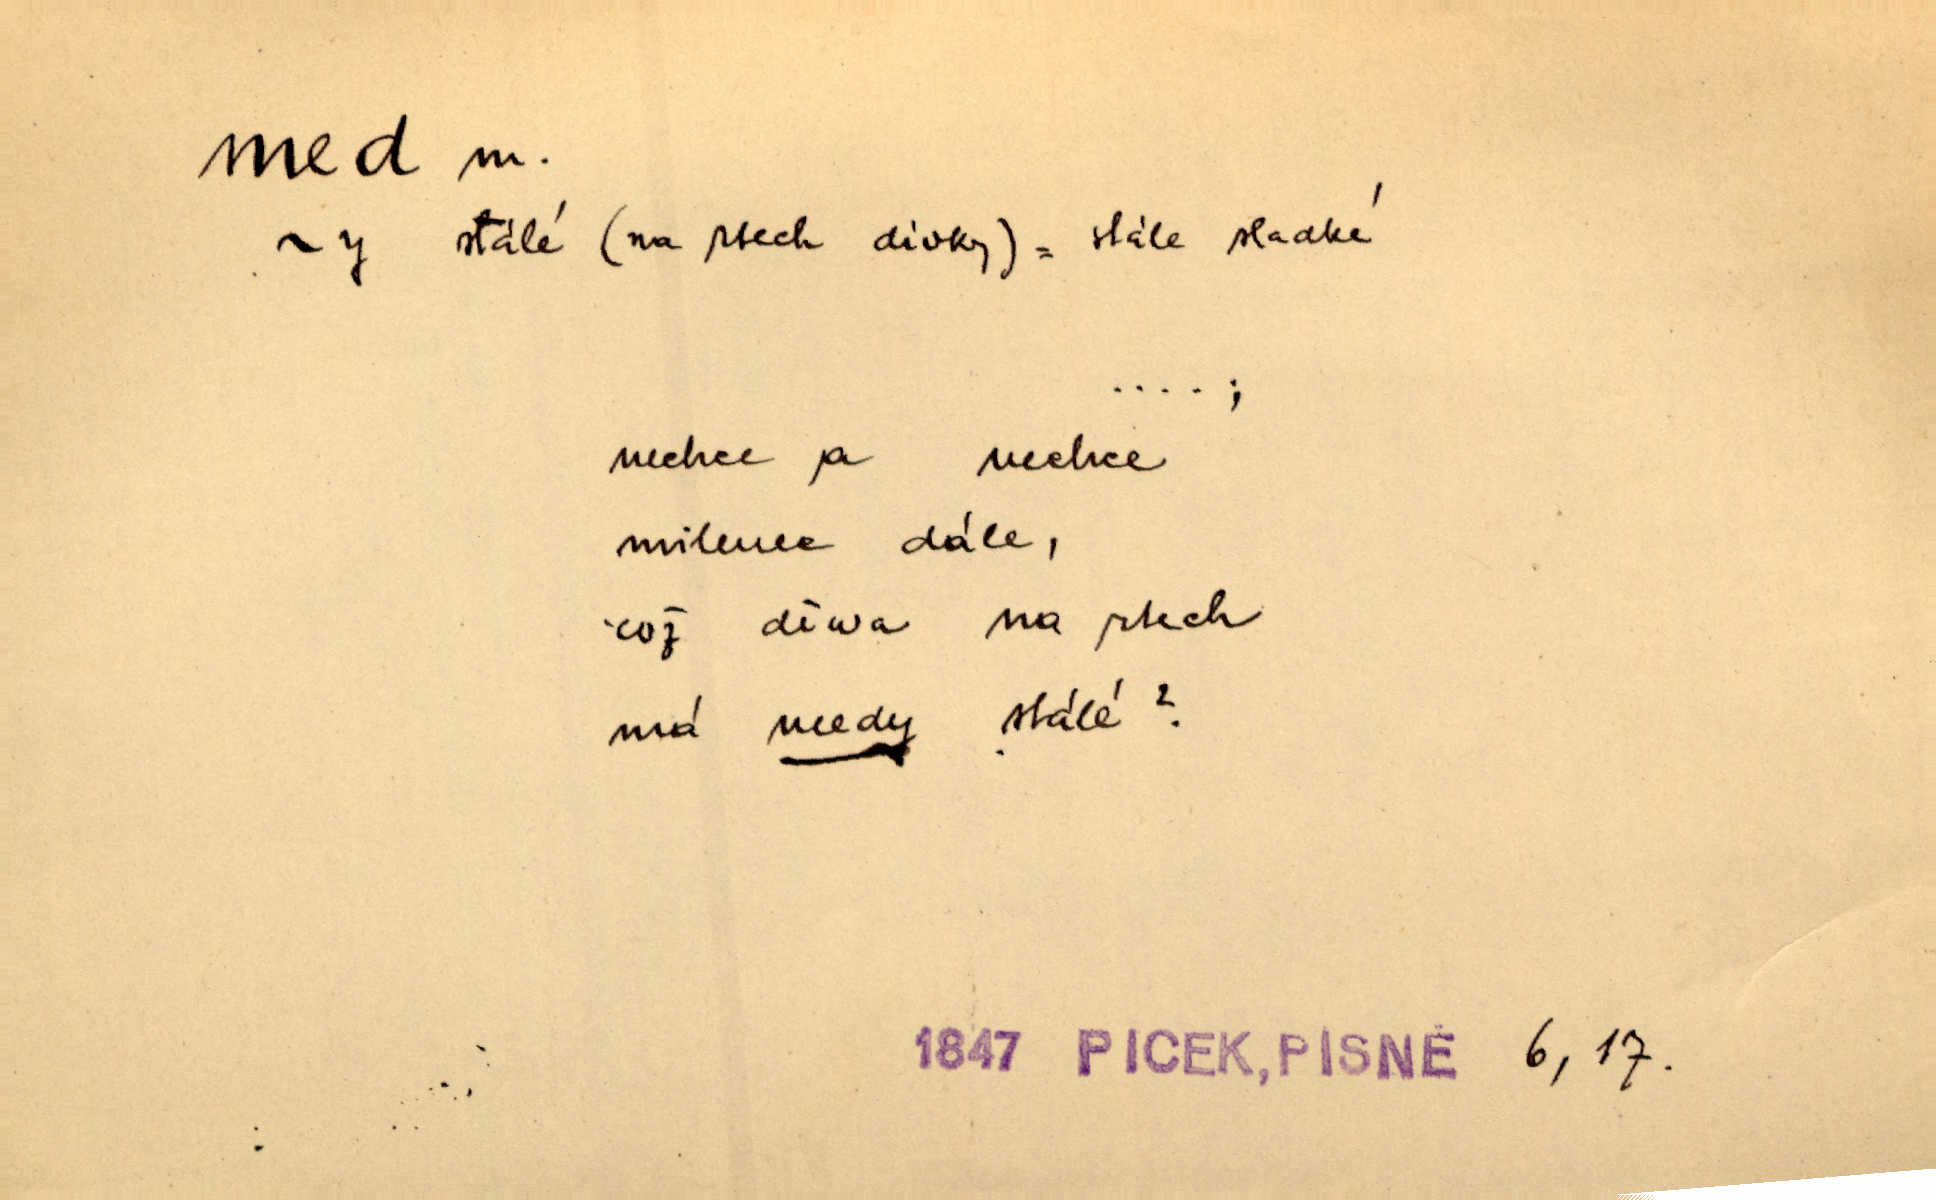 med m.
~y stálé (na rtech dívky) = stále sladké
....;
nechce a nechce
milenec dále,
což děwa na rtech
má medy stálé?
1847 PICEK, PÍSNĚ 6, 17.